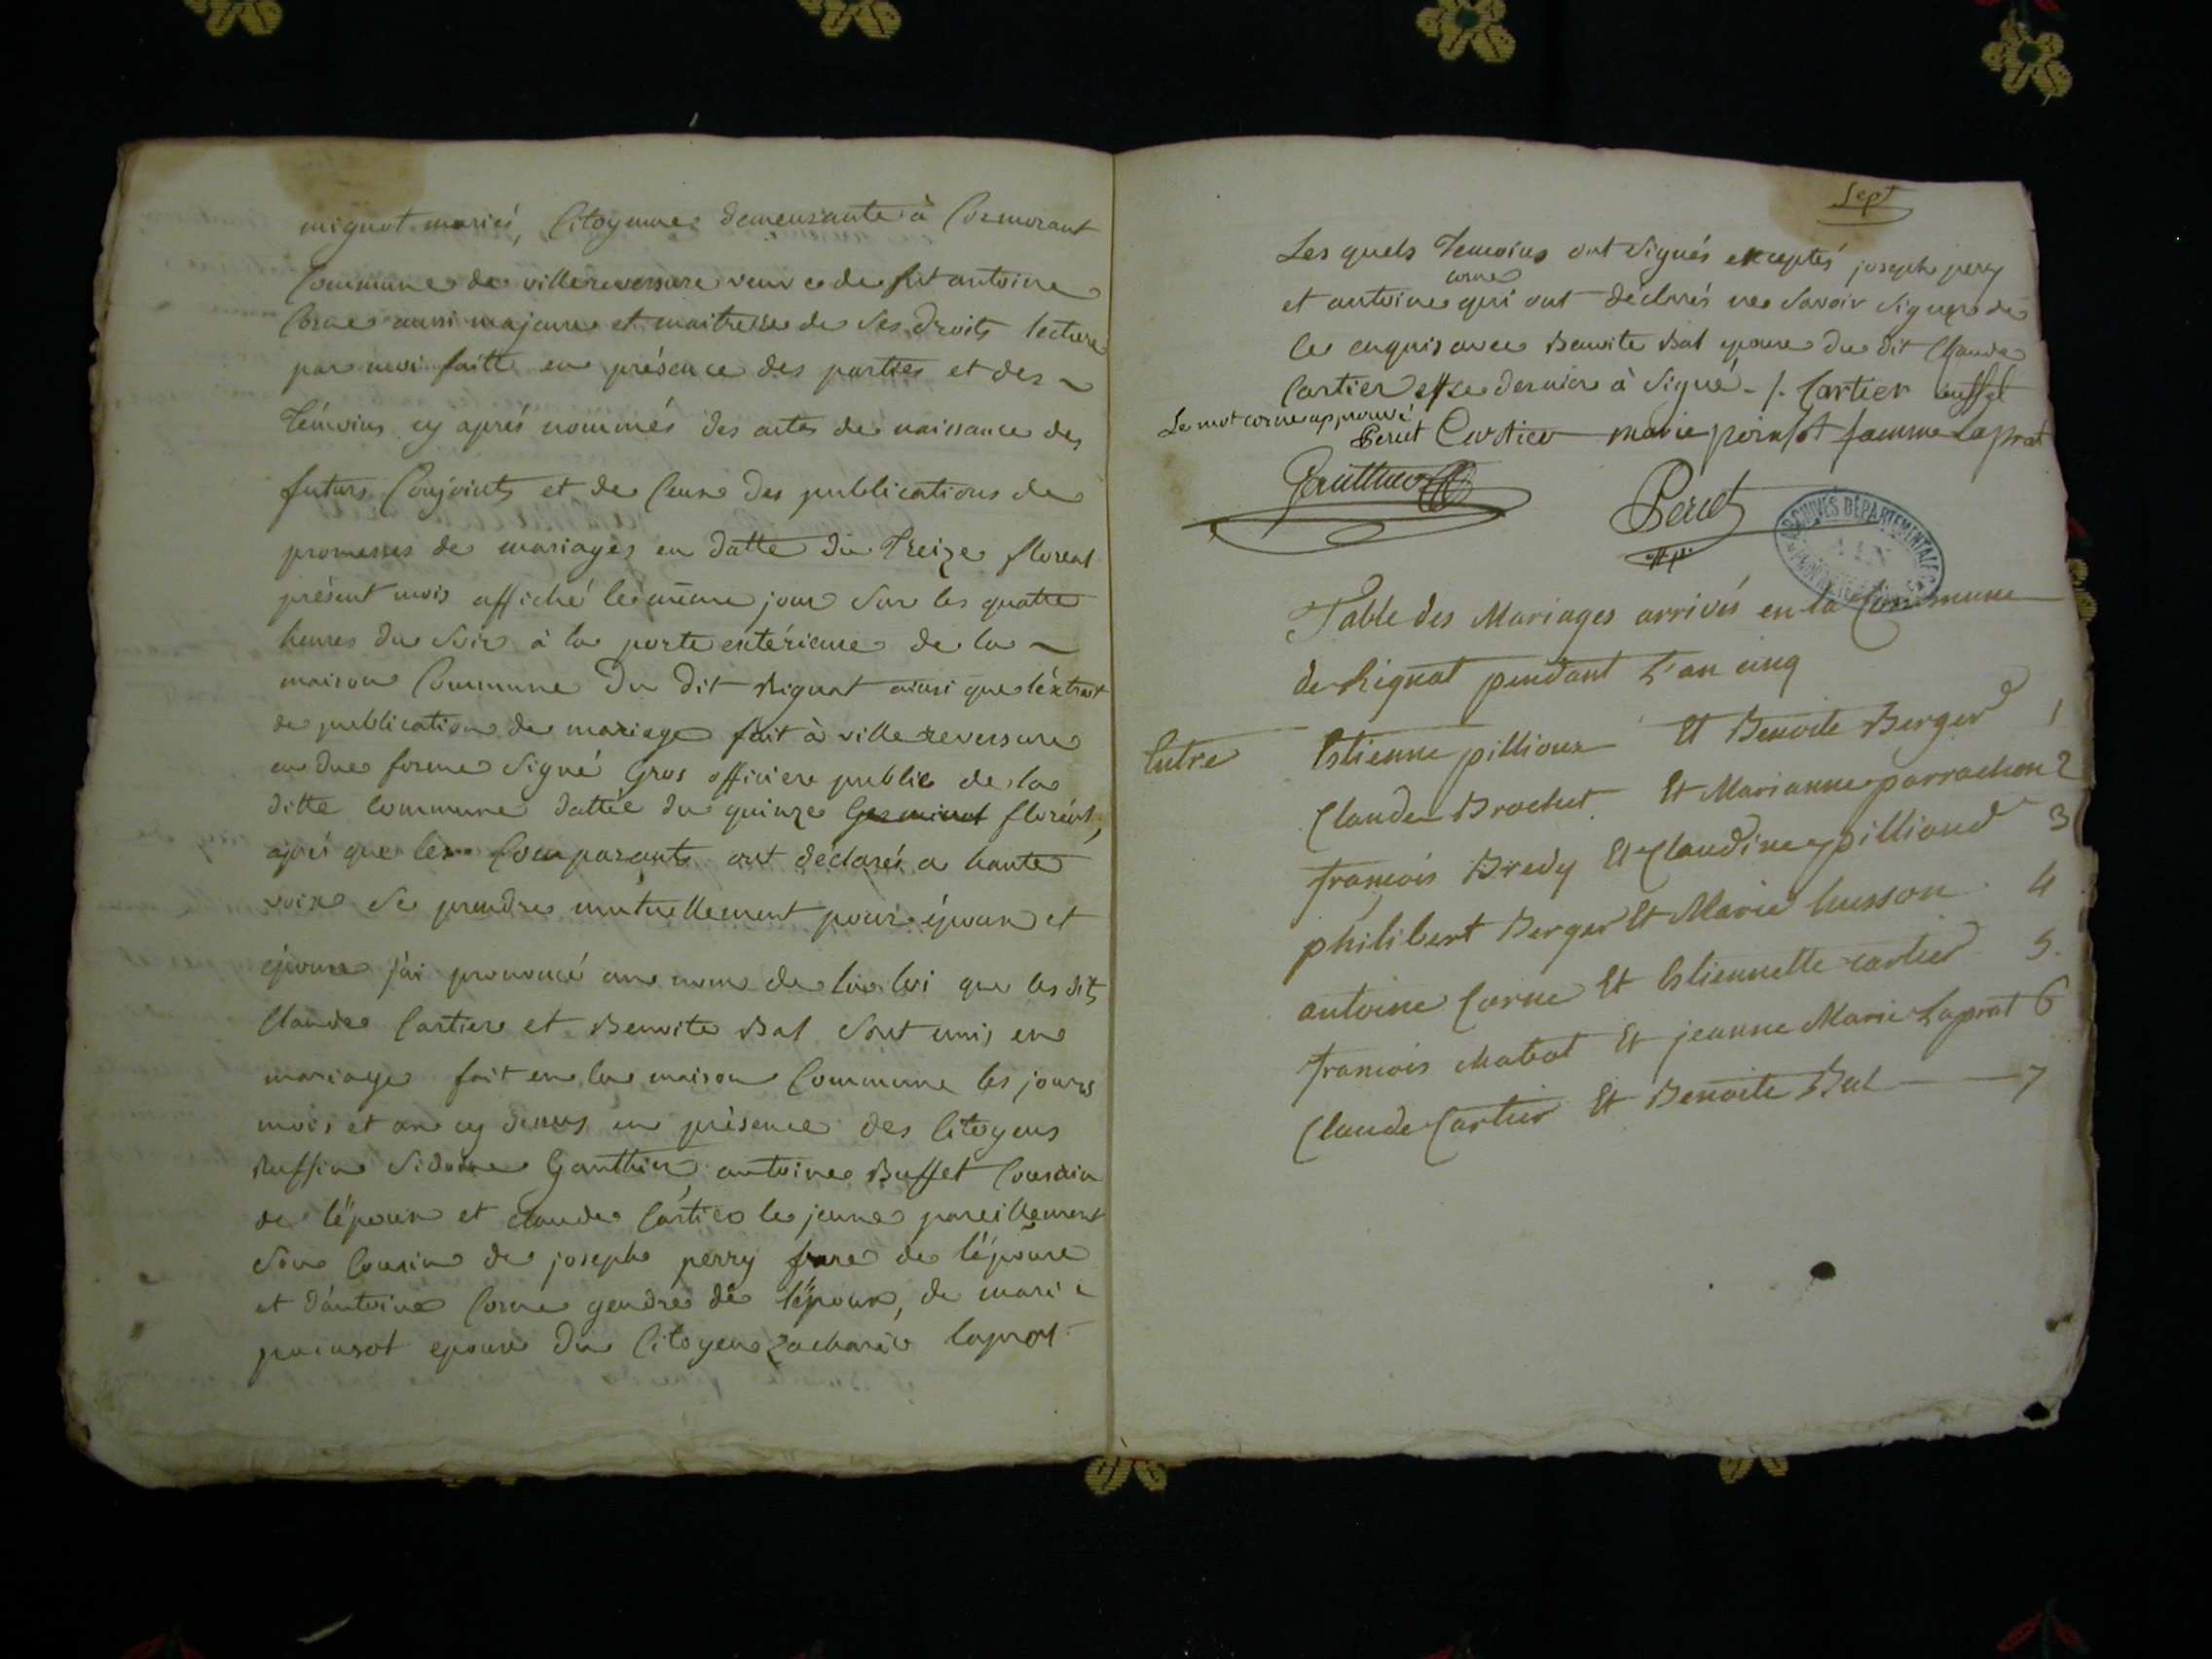 mignot mariés, Citoyenne demeurante à Cormorant
Commune de villereversure veuve de fut antoine
Corne aussi majeure et maitresse de ses droits lecture
par moi faitte en présence des parties et des ~
Témoins cy aprés nommés des actes de naissance des
futurs Conjoints et de leurs des publications de
promesses de mariages en datte du Treize floreal
présent mois affiché le même jour sur les quatre
heures du soir à la porte extérieure de la ~
maison Commune du dit Rignat ainsi que léxtrait
de publication de mariage fait à villereversure
en due forme signé Gros officiere public de la
ditte commune dattée du quinze Germinal floréal,
aprés que les Comparants ont déclarés a haute
voix se prendre mutuellement pour époux et
épouse j'ai prononcé au nom de la loi que les dits
Claude Cartier et Benoite Bal sont unis en
mariage fait en la maison Commune les jours
mois et an cy dessus en présence des Citoyens
Ruffin Sidoine Gauthier, antoine Buffet Cousin
de l'époux et claude Cartier le jeune pareillement
son Cousin de joseph perry frere de l'épouse
et d'antoine Corne gendre de l'époux, de marie
poinsot epouse du Citoyen Zacharie laprat
Sept
Les quels Temoins ont signés exceptés joseph perry
corne
et antoine qui ont déclarés ne savoir signer de
ce enquis avec Benoite Bal epouse du dit Claude
Cartier et ce dernier à signé - /. Cartier buffet
Le mot corne approuvé
Perret Cartier marie poinsot famme Laprat
Gauthier
Perret
ARCHIVES DÉPARTEMENTALES
AIN
Table des Mariages arrivés en la Commune
de Rignat pendant L'an cinq
Entre Estienne pillioux Et Benoite Berger 1
Claude Brochet Et Marianne parrachon 2
françois Bredy Et Claudine pilliond 3
philibert Berger Et Marie husson 4
antoine Corne Et Estiennette cartier 5.
francois Mabat Et jeanne Marie Laprat 6
Claude Cartier Et Benoite Bal - 7